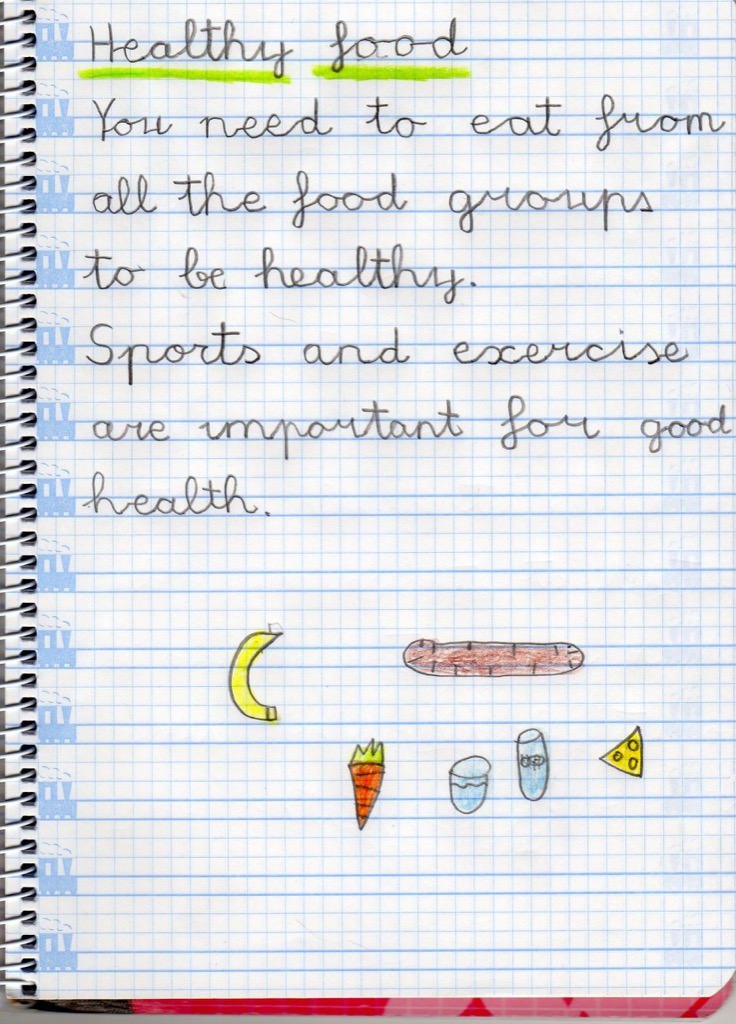 Healthy food
You need to eat from
all the food groups
to be healthy.
Sports and exercise
are important for good
health.